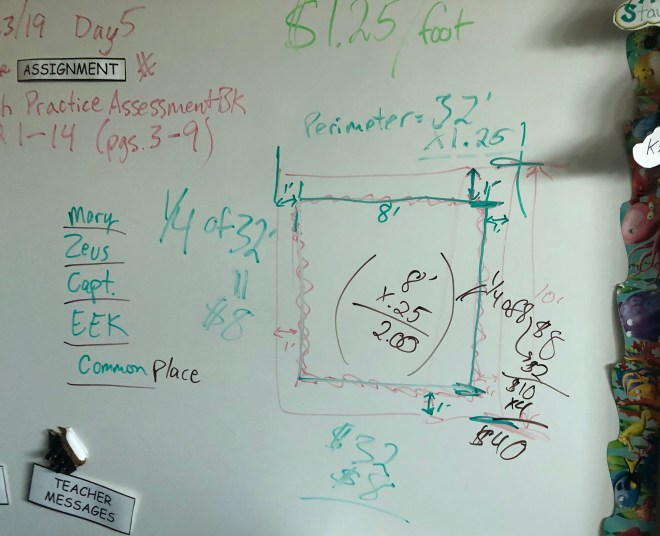 3/19 Day 5
ASSIGNMENT
Practice Assessment BK
1-14 (pgs. 3-9)
$1.25/foot
Perimeter = 32'
x1.25
Mary
Zeus
Capt.
EEK
Common Place
1/4 of 32'
11
$8
1'
1'
8'
1'
8'
x.25
2.00
1/4 of 8
$8
$2
$10
x4
$40
10'
1'
1'
$32
$8
TEACHER
MESSAGES